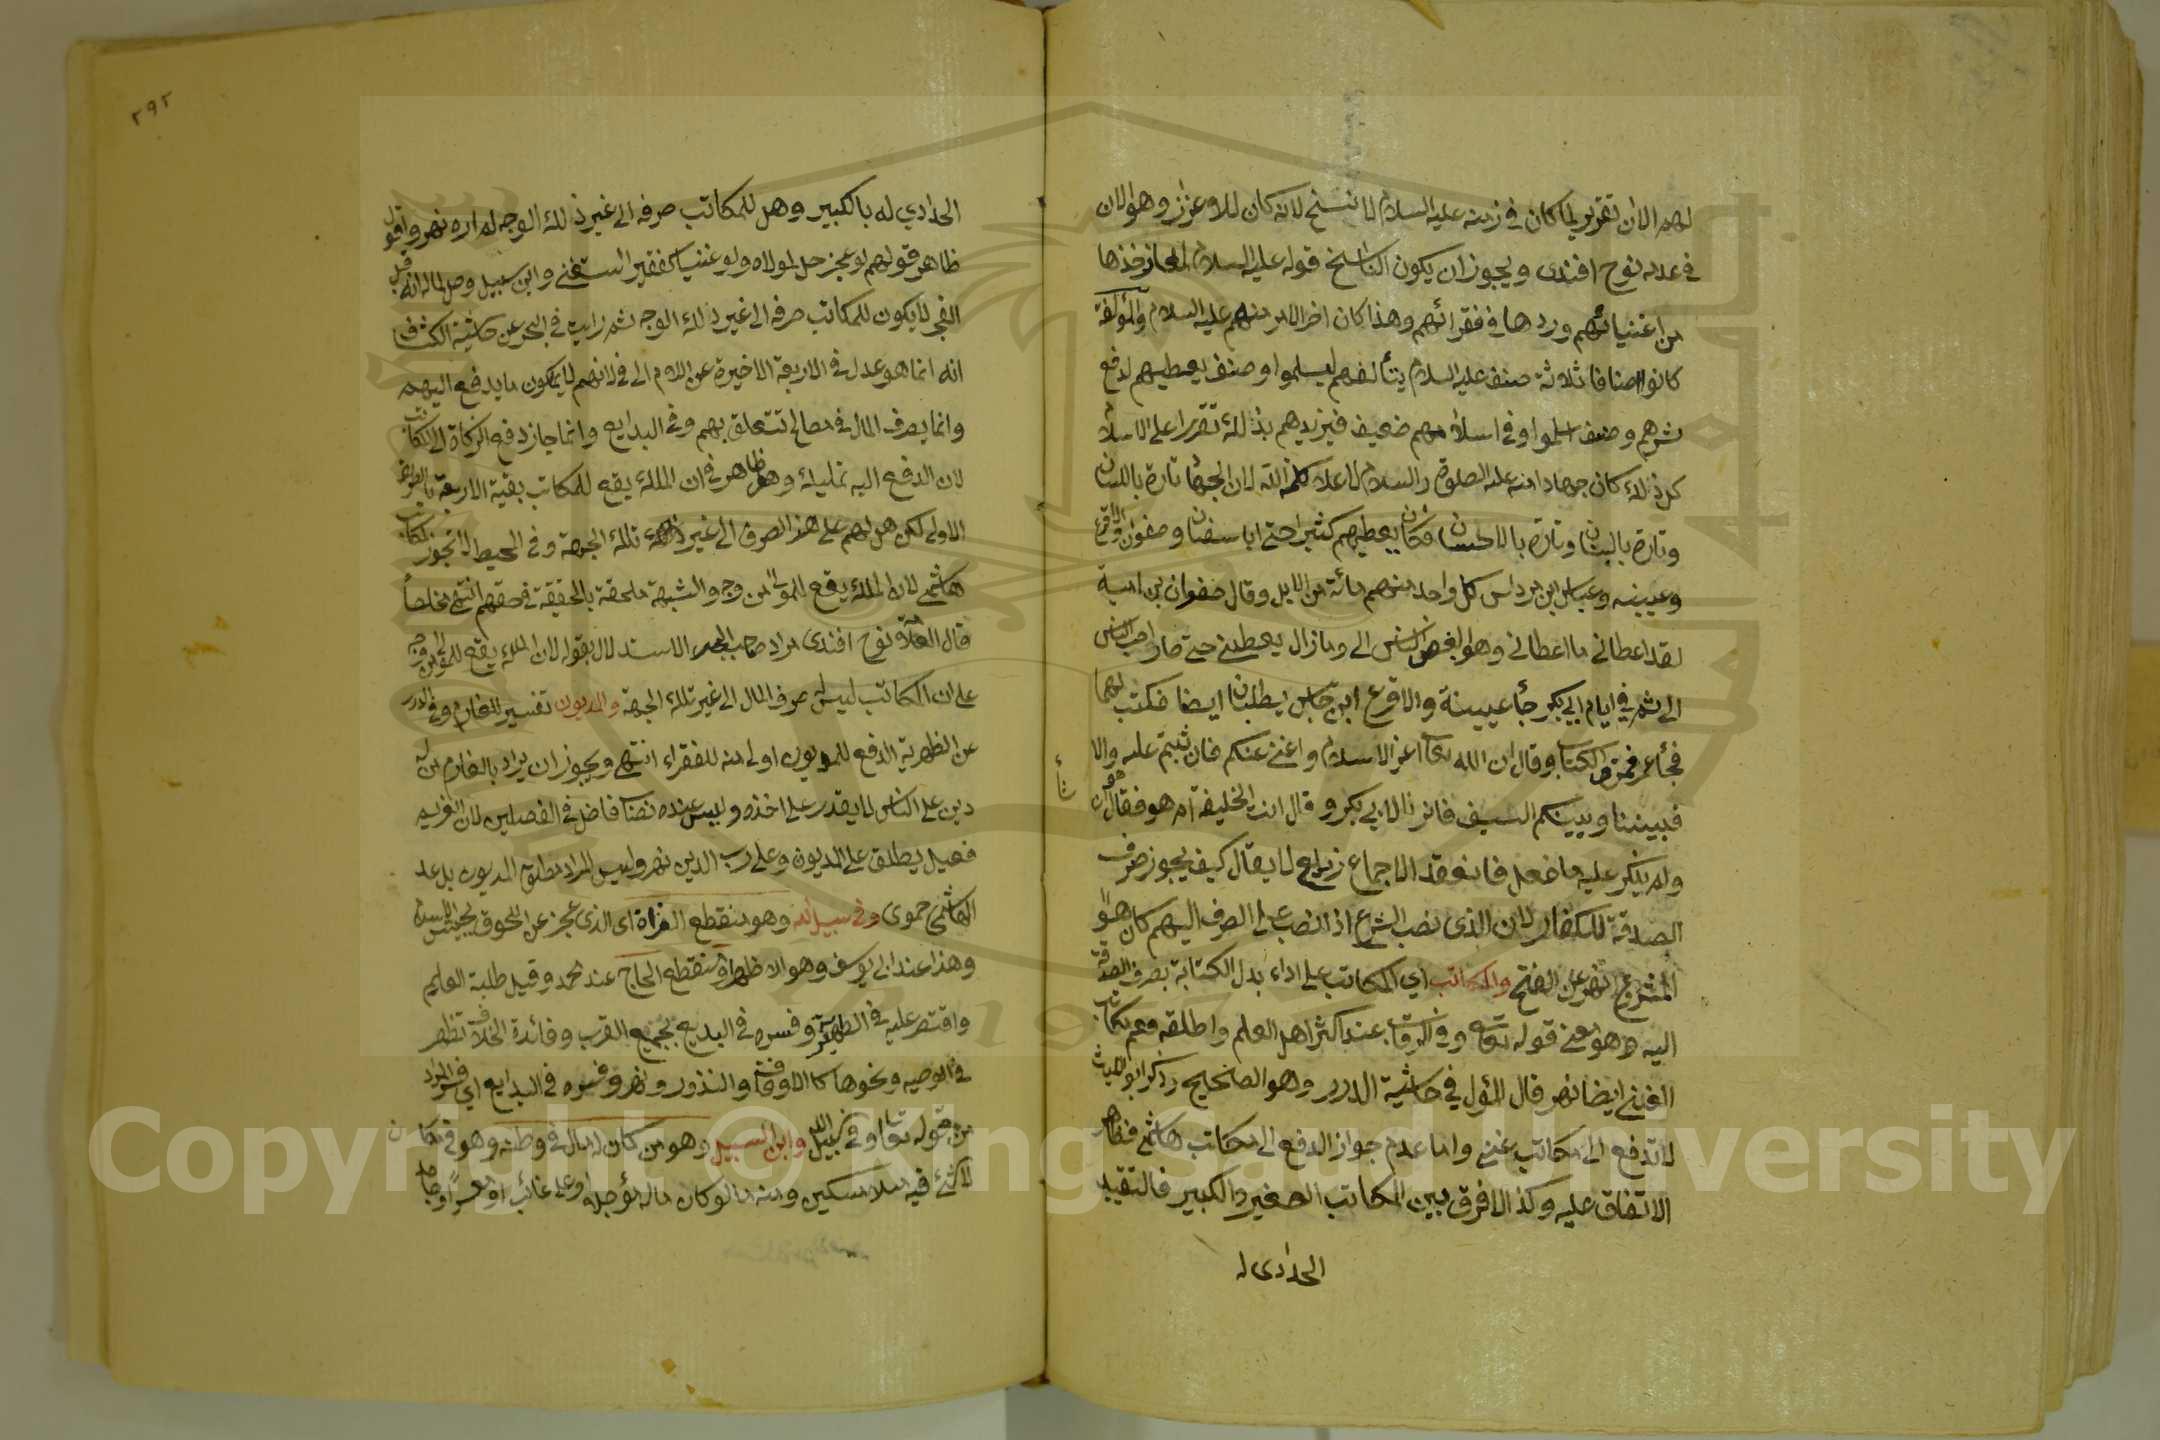 لهم الان تقرير لما كان في زمنه عليه السلام لا نسخ لانه كان للاعزاز وهو الان
في عدمه نوح افندى ويجوز ان يكون الناسخ قوله عليه السلام لمعاذ خذها
من اغنيائهم وردها في فقرائهم وهذا كان اخر الامر منهم عليه السلام والمؤلفة
كانوا اصنافا ثلاثة صنف عليه السلام يتألفهم ليسلموا وصنف يعطيهم لدفع
شرهم وصنف اسلموا وفي اسلامهم ضعيف فيزيدهم بذلك تقريرا على الاسلام
كل ذلك كان جهادا منه عليه الصلوة والسلام لاعلاء كلمة الله لان الجهاد تارة باللسان
وتارة بالبنان وتارة بالاحسان فكان يعطيهم كثيرا حتى ابا سفيان وصفوان والاقرع
وعيينه وعباس ابن مرداس كل واحد منهم مائة من الابل وقال صفوان بن امية
لقد اعطاني ما اعطاني وهو ابغض الناس الي وما زال يعطيني حتى صار احب الناس
الي ثم في ايام ابي بكر جأ عيينة والاقرع ابن حابس يطلبان ايضا فكتب لهما
فجأ عمر فمزق الكتاب وقال ان الله تعا اعز الاسلام واغنى عنكم فان ثبتم عليه والا
فبيننا وبينكم السيف فاتيا الى ابي بكر وقال انت الخليفة ام هو فقال هو ان شأ
ولم ينكر عليه ما فعل فانعقد الاجماع زيلعي لا يقال كيف يجوز صرف
الصدقة للكفار لان الذى نصب الشرع اذا نصب على الصرف اليهم كان هو
المشروع نهر عن الفتح والمكاتب اي المكاتب على اداء بدل الكتابة بصرف الصدقة
اليه وهو معنى قوله تعا وفي الرقاب عند اكثر اهل العلم واطلقه فعم مكاتب
الغني ايضا نهر قال المؤلف في حاشية الدرر وهو الصحيح وذكر ابو الليث
لا تدفع الى مكاتب غني واما عدم جواز الدفع الى مكاتب هاشمي فظاهر
الاتفاق عليه وكذا لا فرق بين المكاتب الصغير والكبير فالتقييد
الحدادى له
٢٩٢
الحدادي له بالكبير وهل للمكاتب صرفه الى غير ذلك الوجه لم اره نهر واقول
ظاهر قولهم لو عجز حل لمولاه ولو غنيا كفقير استغنى وابن سبيل وصل لماله انه قبل
العجز لا يكون للمكاتب صرفه الى غير ذلك الوجه ثم رايت في البحر عن حاشية الكشاف
انه انما هو عدل في الاربعة الاخيرة عن اللام الى في لانهم لا يملكون ما يدفع اليهم
وانما يصرف المال في مصالح تتعلق بهم وفي البدايع وانما جاز دفع الزكاة الى المكاتب
لان الدفع اليه تمليك وهو ظاهر في ان الملك يقع للمكاتب بقية الاربعة بالطريق
الاولى لكن هل لهم على هذا الصرف الى غير تلك الجهة وفي المحيط لا تجوز لمكاتب
هاشمي لان الملك يقع للمولى من وجه والشبهة ملحقة بالحقيقة في حقهم انتهى ملخصاً
قال العلامة نوح افندى مراد صاحب البحر الاستدلال بقوله لان الملك يقع للمولى من وجه
على ان المكاتب ليس له صرف المال الى غير تلك الجهة والمديون تفسير للغارم وفي الدرر
عن الظهرية الدفع للمديون اولى منه للفقراء انتهى ويجوز ان يراد بالغارم من له
دين على الناس لا يقدر على اخذه وليس عنده نصاب فاضل في الفصلين لان الغريم
فعيل يطلق على المديون وعلى رب الدين نهر وليس المراد مطلق المديون بل عد
الهاشمي حموى وفي سبيل الله وهو منقطع الغزاة اى الذى عجز عن اللحوق بجيش
وهذا عند ابي يوسف وهو الاظهر او منقطع الحاج عند محمد وقيل طلبة العلم
واقتصر عليه في الظهيرية وفسره في البديع بجميع القرب وفائدة الخلاف تظهر
في الوصيه ونحوها كالاوقاف والنذور نهر وفسره في البدايع اي فسر المراد
من قوله تعا وفي سبيل الله وابن السبيل وهو من كان له مال في وطنه وهو في مكان
لا شئ فيه ومنه ما لو كان ماله مؤجلا او على غائب او معسر او جاحد